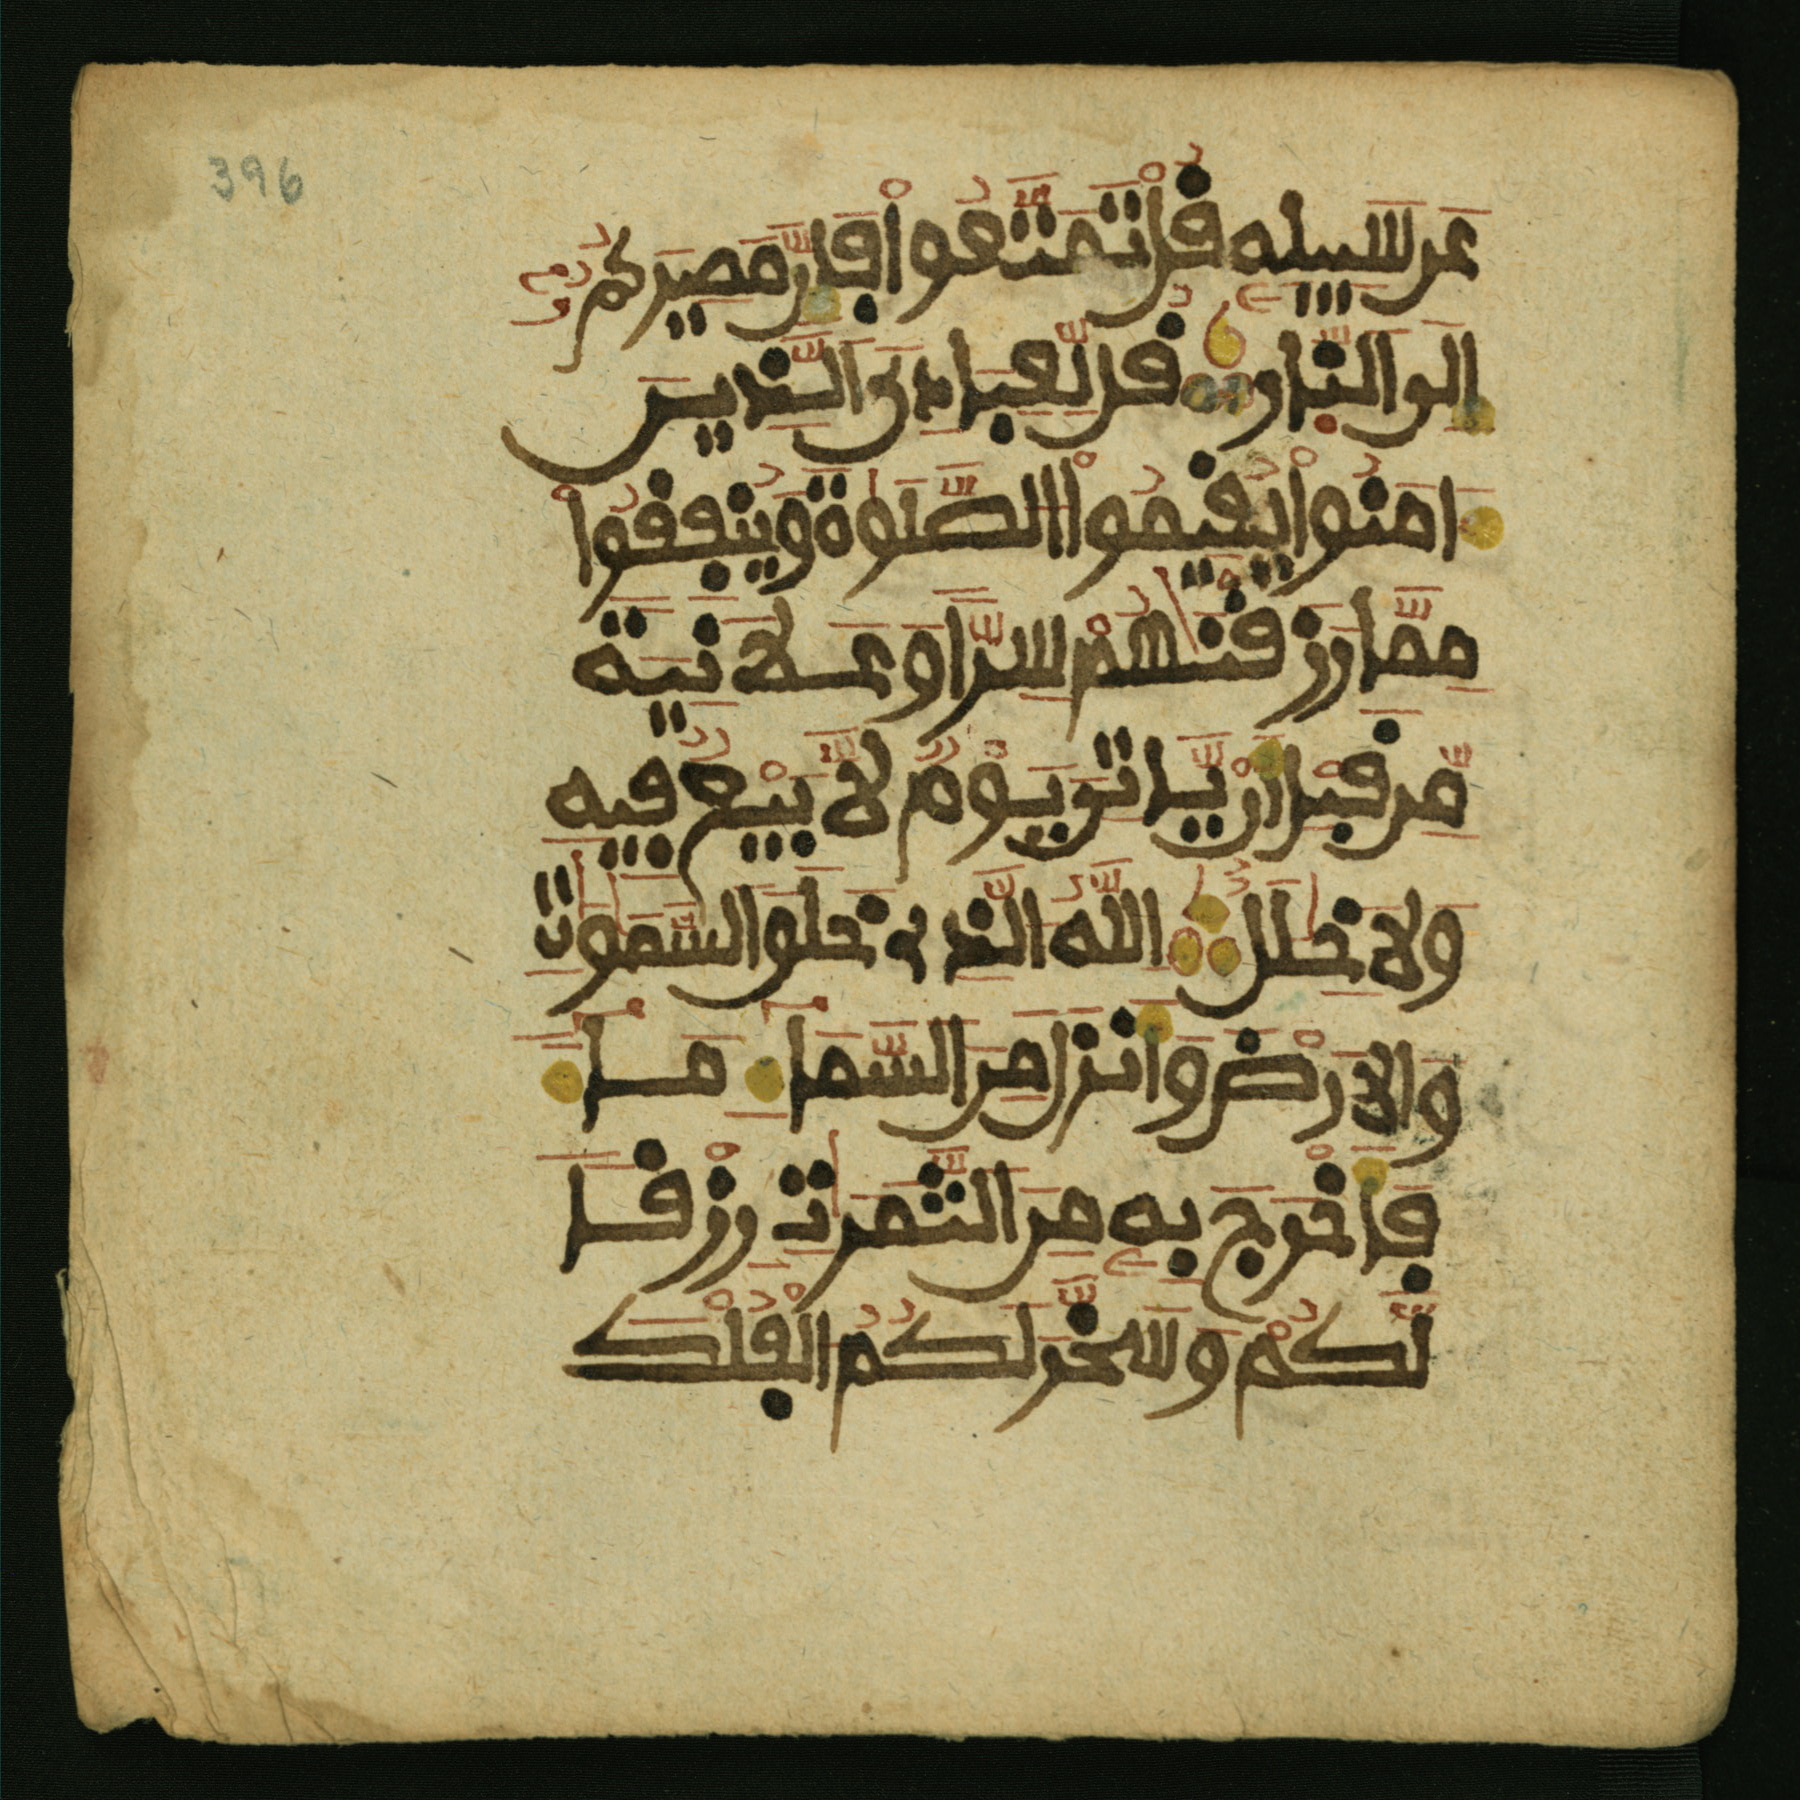 396
عَن سَبِيلِهِ قُلْ تَمَتَّعُواْ فَإِنَّ مَصِيرَكُمُ
إِلَى النَّارِ قُل لِّعِبَادِىَ الَّذِينَ
ءَامَنُواْ يُقِيمُواْ الصَّلَوٰةَ وَيُنفِقُواْ
مِمَّا رَزَقْنَٰهُمْ سِرّاً وَعَلَٰنِيَةً
مِّن قَبْلِ أَنْ يَّاتِىَ يَوْمٌ لَّا بَيْعٌ فِيهِ
وَلَا خِلَٰلٌ اللَّهُ الَّذِى خَلَقَ السَّمَٰوَٰتِ
وَالَارْضَ وَأَنزَلَ مِنَ السَّمَآءِ مَآءً
فَأَخْرَجَ بِهِ مِنَ الثَّمَرَٰتِ رِزْقاً
لَّكُمْ وَسَخَّرَ لَكُمُ الْفُلْكَ